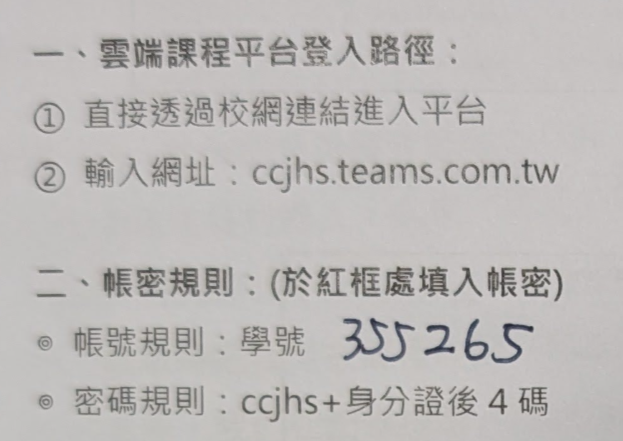 一、雲端課程平台登入路徑：
① 直接透過校網連結進入平台
② 輸入網址：ccjhs.teams.com.tw
二、帳密規則：(於紅框處填入帳密)
◎ 帳號規則：學號 355265
◎ 密碼規則：ccjhs+身分證後 4 碼